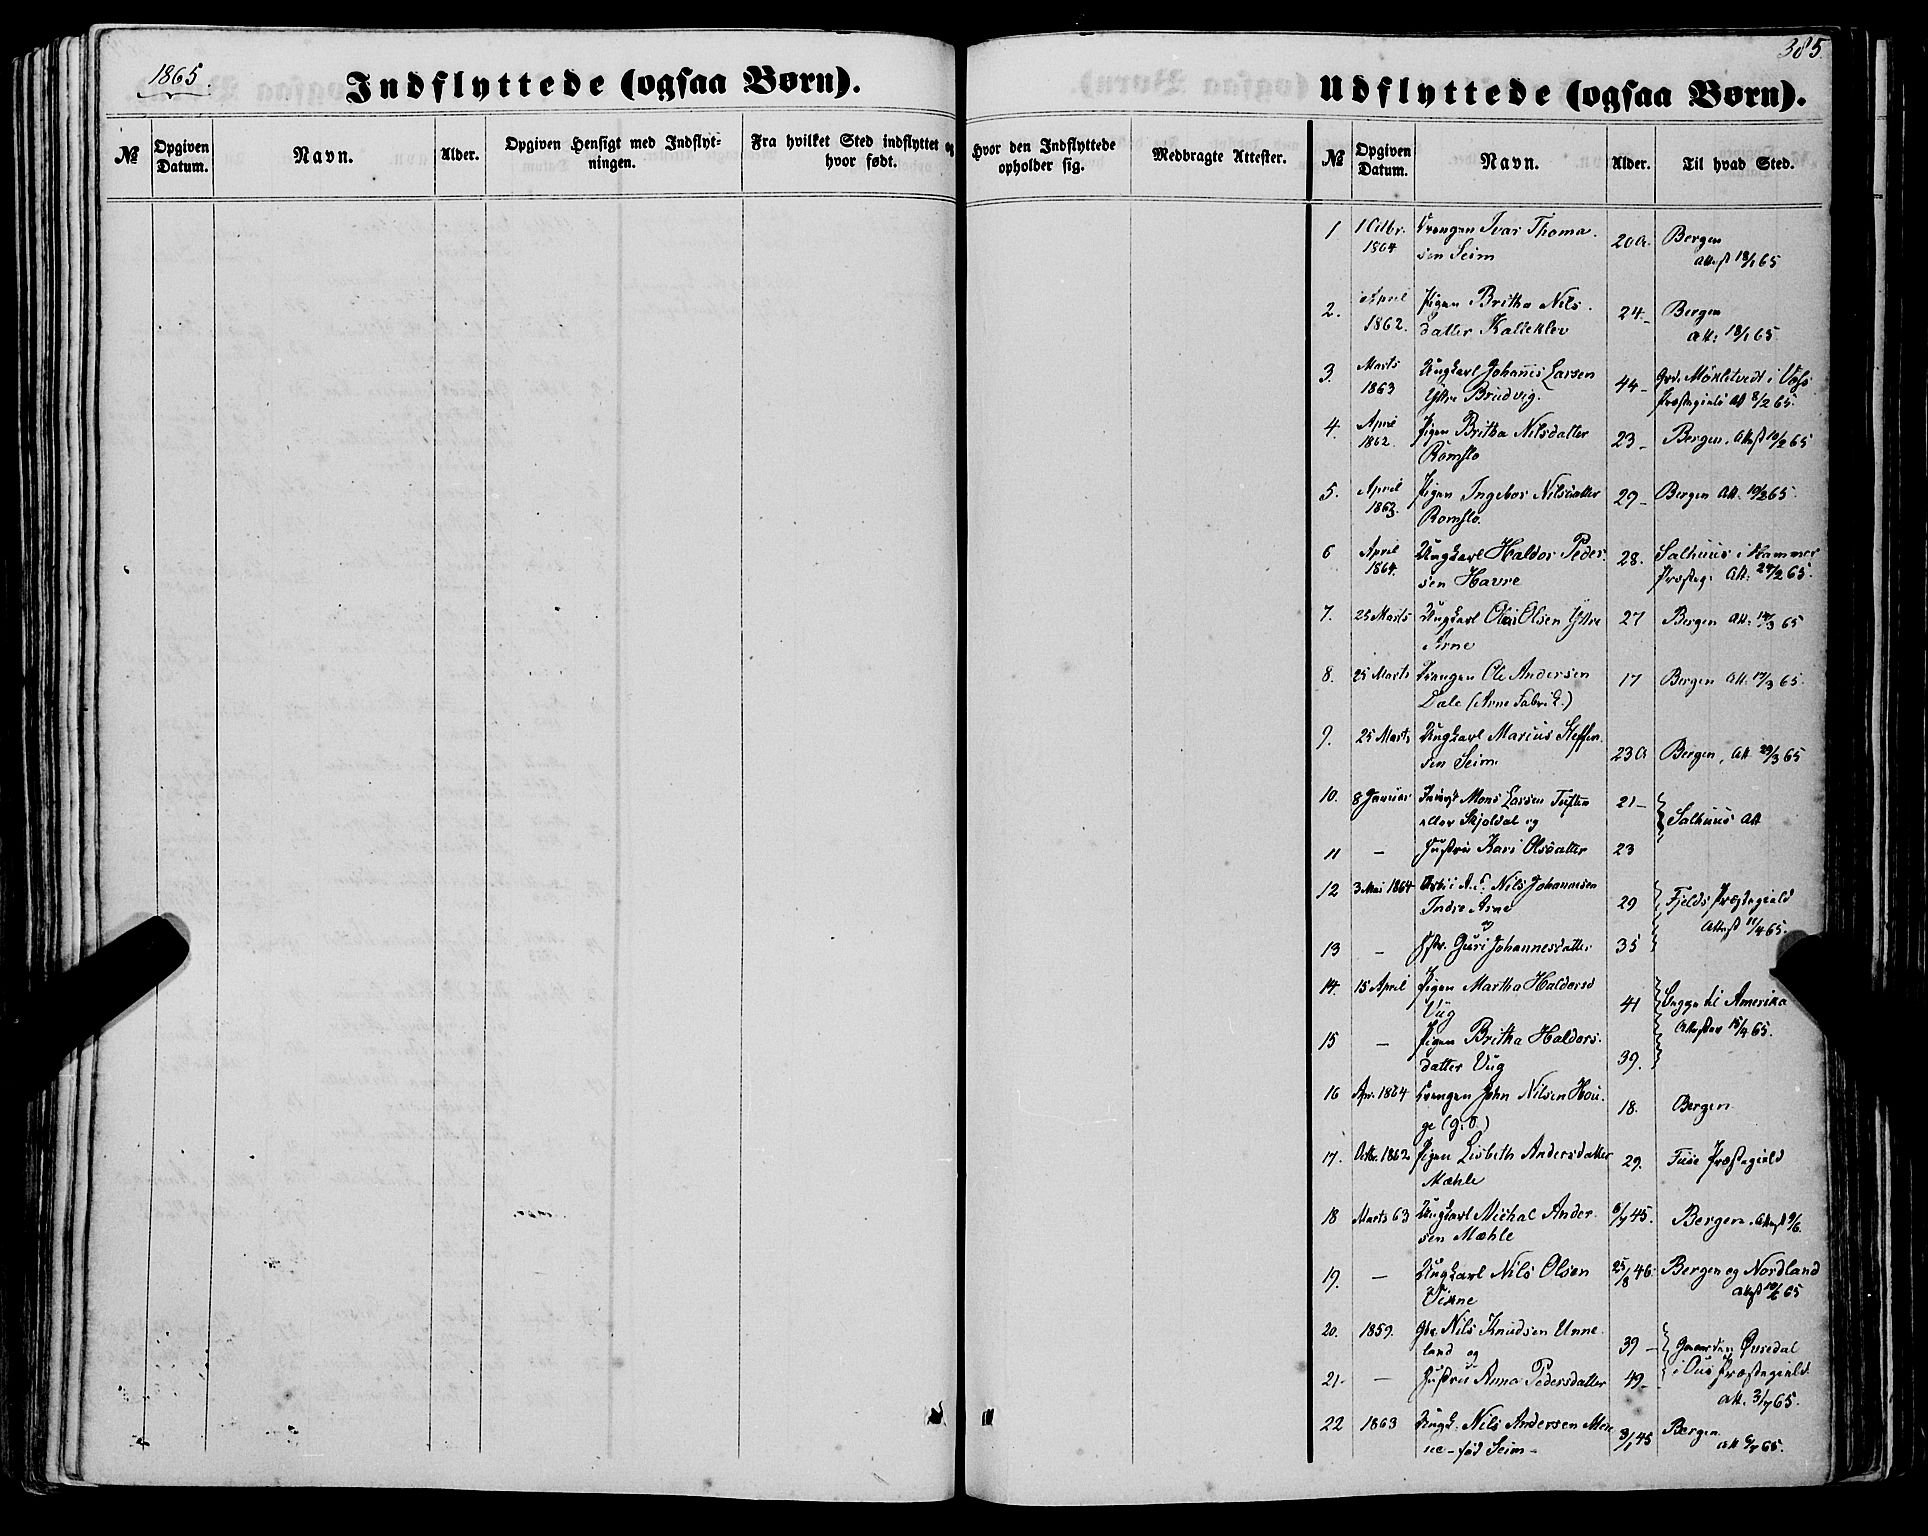 1865
385.
Indflyttede (ogsaa Børn).
Udflyttede (ogsaa Børn).
№
Opgiven Datum.
Navn.
Alder.
Opgiven Hensigt med Indflyt-
ningen.
Fra hvilket Sted indflyttet og
hvor født.
Hvor den Indflyttede
opholder sig.
Medbragte Attester.
№
Opgiven Datum.
Navn.
Alder.
Til hvad Sted.
1 1 Octbr. Drengen Ivar Thoma-
1864 sen Seim 20 A. Bergen
Attest 18/1 65
2. April Pigen Britha Nils
1862. datter Kalleklev 24- Bergen
Att: 18/1 65.
3. Marts Ungkarl Johannis Larsen
1863 Yttre Brudvig. 44- Grd. Mökletvedt i Vos
Præstegield Att 8/2 65.
4. April Pigen Britha Nilsdatter
1862. Romslo 23- Bergen. Attest 10/2 65
5. April Pigen Ingebor Nilsdatter
1863. Romslo. 29- Bergen Att. 10/2 65.
6 April Ungkarl Haldor Peder-
1864. sen Havre 28. Salhuus i Hammer
Præsteg: Att: 24/2 65.
7. 25 Marts Ungkarl Ole Olsen Yttre
Arne 27 Bergen Att: 14/3 65
8. 25 Marts Drengen Ole Andersen
Dale (Arne Fabrik.) 17 Bergen Att. 17/3 65.
9. 25 Marts Ungkarl Marius Steffen
sen Seim. 23 A Bergen, Att 29/3 65
10. 8 Januar Mons Larsen Tuften
eller Skjoldal og 21- Salhuus Att
11 - Hustru Kari Olsdatter 23
12 3 Mai 1864 Nils Johannesen
Indre Arne 29 Fjelds Præstegield
og Attest 11/4 65.
13 - Guri Johannesdatter 35
14. 15 April Pigen Martha Haldorsd
Vüg 41 Begge til Amerika
Attester 15/4 65.
15 - Pigen Britha Haldors-
datter Vüg 39.
16 Apr. 1864 Drengen John Nilsen Hou-
ge 18. Bergen
17. Octbr. 1862 Pigen Lisbeth Andersdatter
Mæhle 29. Fuse Præstegield
18 Marts 63 Ungkarl Michal Ander
sen Mæhle 6/7 45. Bergen. Attest 9/6.
19. - Ungkarl Nils Olsen
Vikne 25/8 46. Bergen og Nordland
Attest 10/6 65
20. 1859. Gbr. Nils Knudsen Unne
land og 39- Gaarden Øvsedal
21- - Hustru Anna Pedersdatter 49- i Ous Præstegield
Att. 3/7 65.
22 1863 Ungk. Nils Andersen
ne - fød Seim- 3/1 45 Bergen
Att 6/7 65.